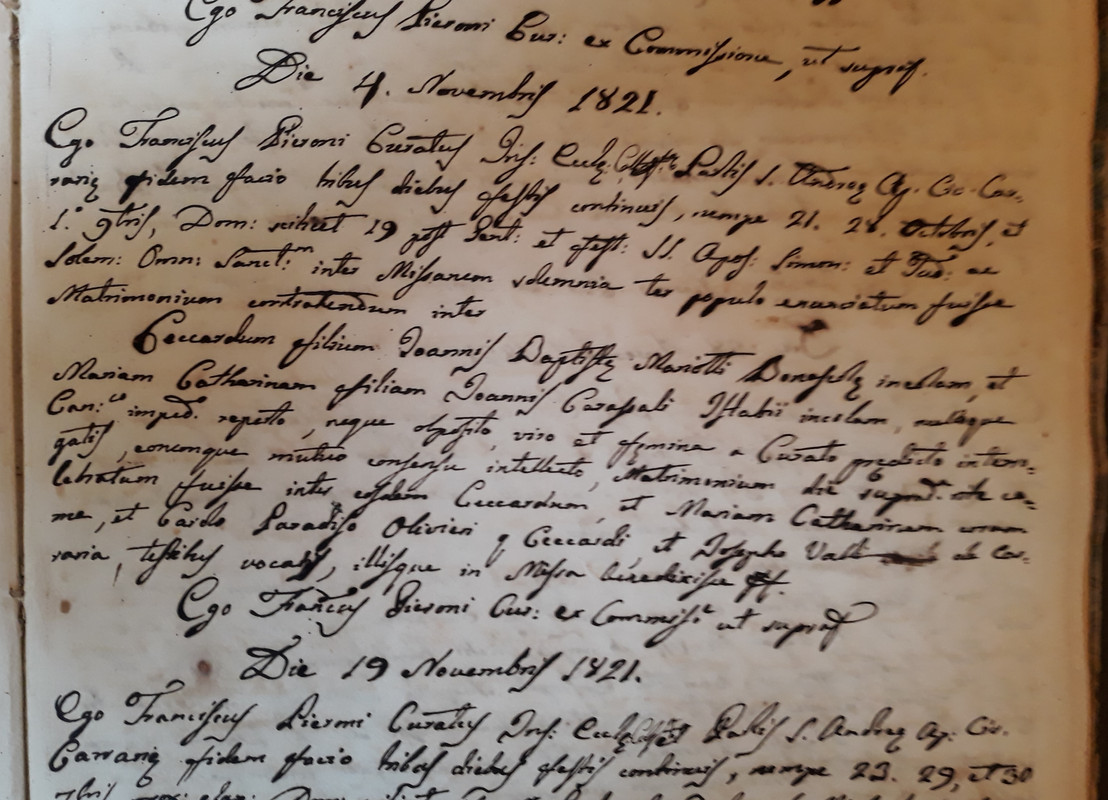 Ego Franciscus Pieroni Cur: ex Commissione, ut supras.
Die 4. Novembris 1821.
Ego Franciscus Pieroni Curatus Ins: Eccle. Parlis S. Andreę Ap. Civ. Car-
rarię fidem facio tribus diebus festis continuis, nempe 21. 28. Octobris, et
1.° 9bris, Dom: scilicet 19 post Pent: et fest: SS. Apos: Simon: et Tud: ac
Solem: Omn: Sanct:m inter Missarum solemnia ter populo enunciatum fuisse
Matrimonium contrahendum inter
Ceccardum filium Joannis Baptistę Mariotti Bonasolę incolam, et
Mariam Catharinam filiam Joannis Carassali Istabii incolam, nulloque
Can:co imped. reperto, neque opposito, viro et femina a Curato prędicto interro-
gatis, eorumque mutuo consensu intellecto, Matrimonium die suprad. ce-
lebratum fuisse inter eosdem Ceccardum, et Mariam Catharinam coram
me, et Carolo Paradiso Olivieri q Ceccardi, et Josepho ab Car-
raria, testibus vocatis, illisque in Missa benedixisse
Ego Francus Pieroni Cur: ex Commisse ut supras
Die 19 Novembris 1821.
Ego Franciscus Pieroni Curatus Ins: Eccle. Parlis S. Andreę Ap: Civ.
Carrarię fidem facio tribus diebus festis continuis, nempe 23. 29, et 30
7bris